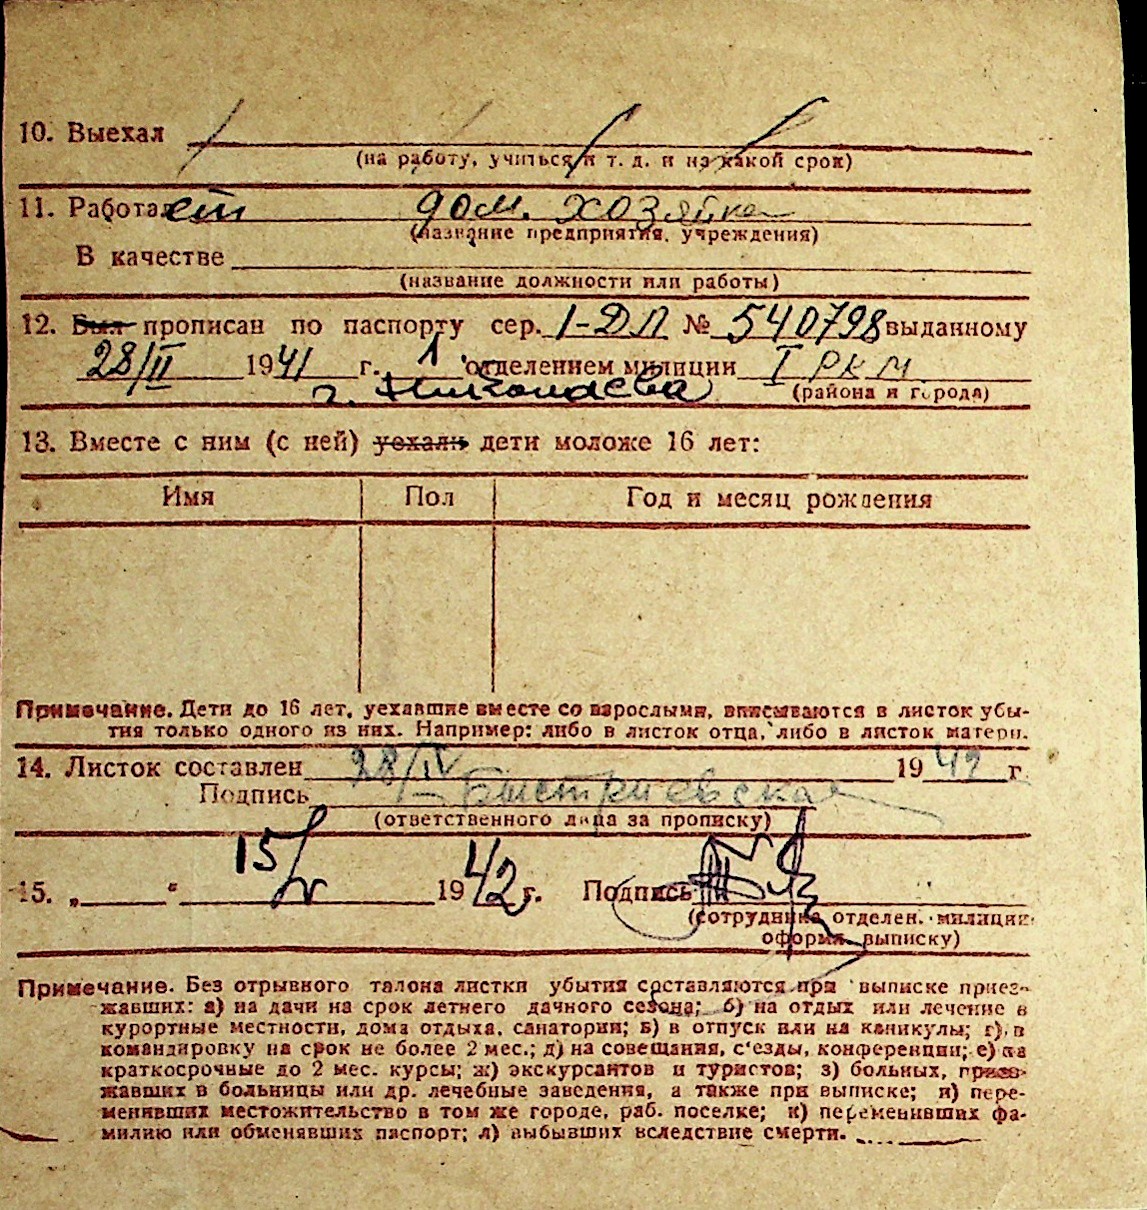 10. Выехал
(на работу, учиться и т. д. и на какой срок)
11. Работает дом. хозяйка
(название предприятия, учреждения)
В качестве
(название должности или работы)
12. Был прописан по паспорту сер. I-ДЛ № 540798 выданному
28/II 1941 г. 1 отделением милиции I РКМ
г. Николаева (района и города)
13. Вместе с ним (с ней) уехали дети моложе 16 лет:
Имя Пол Год и месяц рождения
Примечание. Дети до 16 лет, уехавшие вместе со взрослыми, вписываются в листок убы-
тия только одного из них. Например: либо в листок отца, либо в листок матери.
14. Листок составлен 28/IV 1942 г
Подпись Быстриевская
(ответственного лица за прописку)
15. „ “ 15/V 1942 г. Подпись
(сотрудника отделен. милиции
оформл. выписку)
Примечание. Без отрывного талона листки убытия составляются при выписке приез-
жавших: а) на дачи на срок летнего дачного сезона; б) на отдых или лечение в
курортные местности, дома отдыха, санатории; в) в отпуск или на каникулы; г) в
командировку на срок не более 2 мес.; д) на совещания, с'езды, конференции; е) на
краткосрочные до 2 мес. курсы; ж) экскурсантов и туристов; з) больных, приез-
жавших в больницы или др. лечебные заведения, а также при выписке; и) пере-
менивших местожительство в том же городе, раб. поселке; к) переменивших фа-
милию или обменявших паспорт; л) выбывших вследствие смерти.